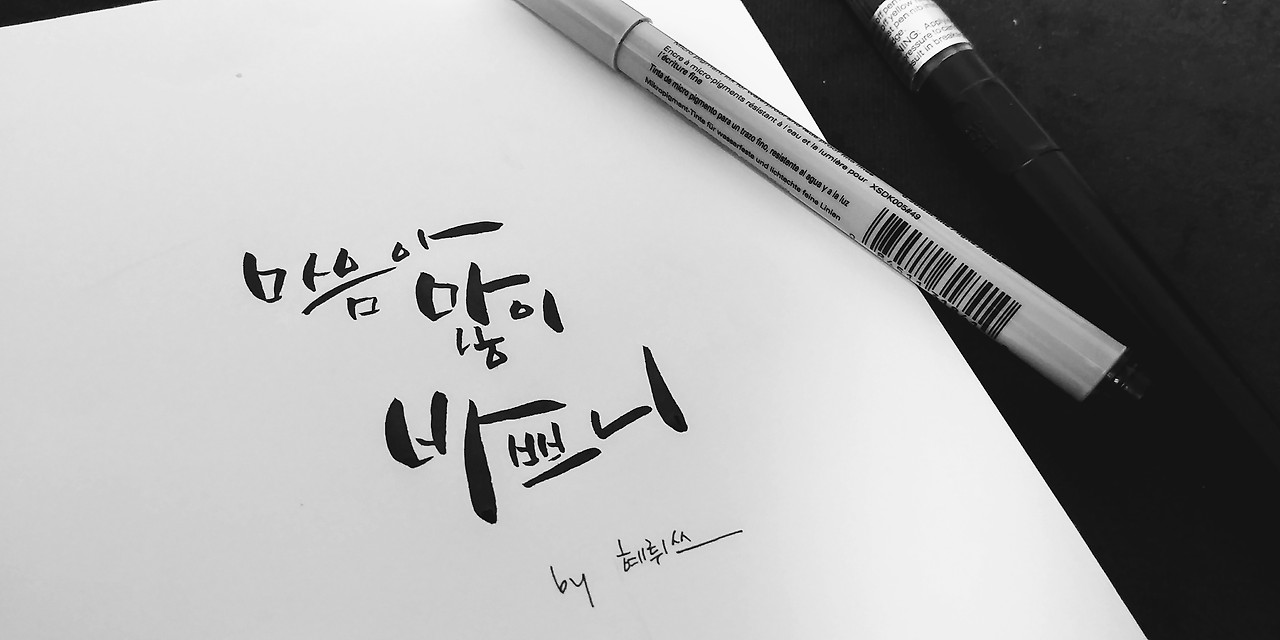 마음아
많이
바쁘니
by 혜휘쓰
Encre à micro-pigments résistant à l'eau et la lumière pour
l'écriture fine
Tinta de micro pigmento para un trazo fino, resistente al agua y a la luz
Mikropigment-Tinte für wasserfeste und lichtechte feine Linien
XSDK005#49